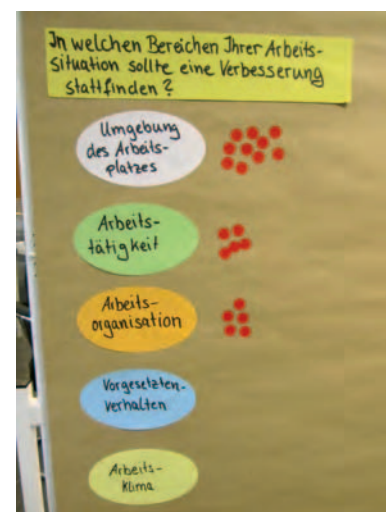 In welchen Bereichen Ihrer Arbeits-
situation sollte eine Verbesserung
stattfinden?
Umgebung
des Arbeits-
platzes
Arbeits-
tätigkeit
Arbeits-
organisation
Vorgesetzten-
verhalten
Arbeits-
klima